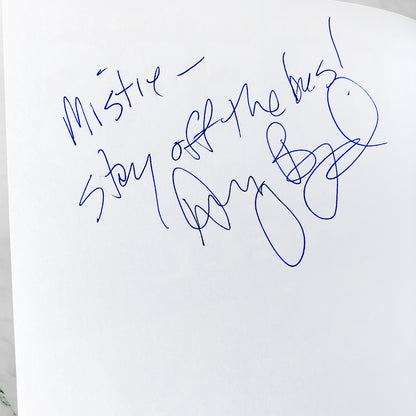 Mistie —
stay off the bus!